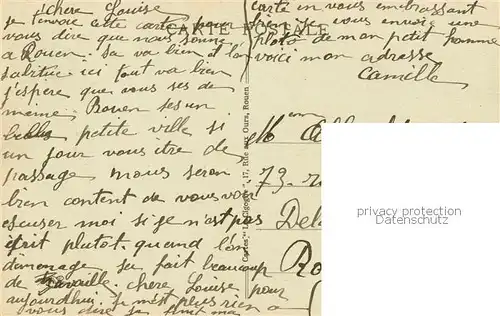 chere Louise
je t'envoie cette carte pour
vous dire que nous somme
a Rouen. sa va bien et la
ici tout va bien
j'espere que vous ses de
meme. Rouen ses un
belle petite ville si
un jour vous itre de
passage nous seron
bien content de vous voir
escuser moi si je n'est pas
ecrit plutot. quand l'on
demenage sa fait beaucoup
de travaille. chere Louise pour
aujourdhui. Je m'est plus rien a
vous dire sa finit ma
carte en vous embrassant
bien. Je vous envoie une
photo de mon petit homme
voici mon adresse
Camille
CARTE POSTALE
Cartes "La Cigogne", 17, Rue aux Ours, Rouen
Mme
73
privacy protection
Datenschutz